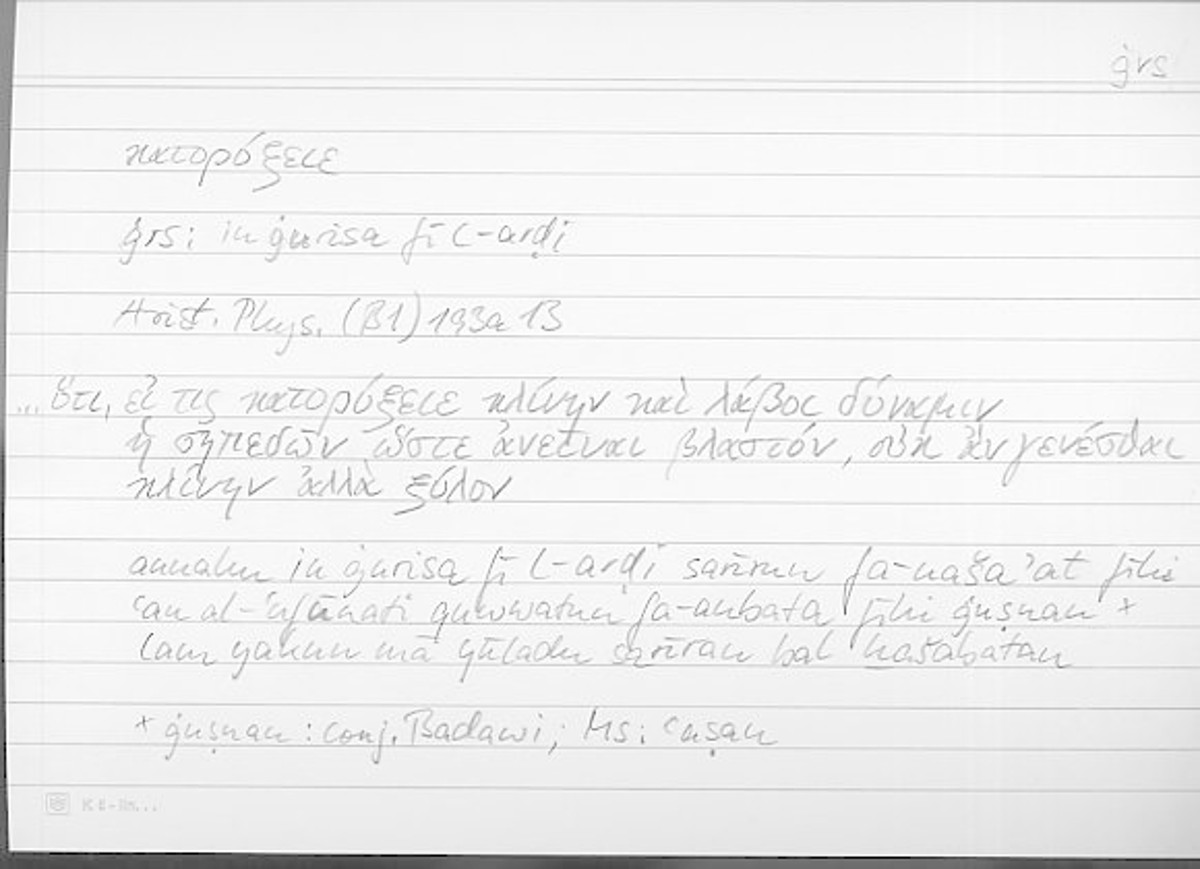 ġrs
κατορύξειε
ġrs: in ġurisa fī l-arḍi
Arist. Phys. (B1) 193a 13
... ὅτι, εἴ τις κατορύξειε κλίνην καὶ λάβοι δύναμιν
ἡ σηπεδὼν ὥστε ἀνεῖναι βλαστόν, οὐκ ἂν γενέσθαι
κλίνην ἀλλὰ ξύλον
annahu in ġurisa fī l-arḍi sarīrun fa-naša'at fīhi
ʿan al-ʿufūnati quwwatun fa-anbata fīhi ġuṣnan ×
lam yakun mā yūladu sarīran bal ḫašabatan
× ġuṣnan : conj. Badawi; Ms: ʿuṣan